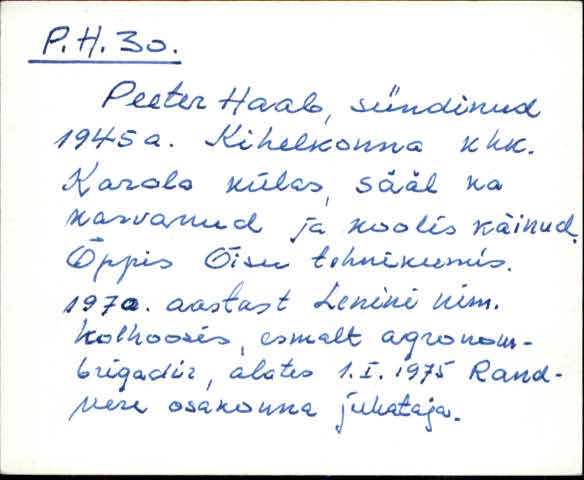 P.H.30.
Peeter Haab, sündinud
1945 a. Kihelkonna khk.
Karala külas, sääl ka
kasvanud ja koolis käinud.
Õppis Õisu tehnikumis.
1970. aastast Lenini nim.
kolhoosis, esmalt agronom-
brigadir, alates 1.I.1975 Rand-
vere osakonna juhataja.